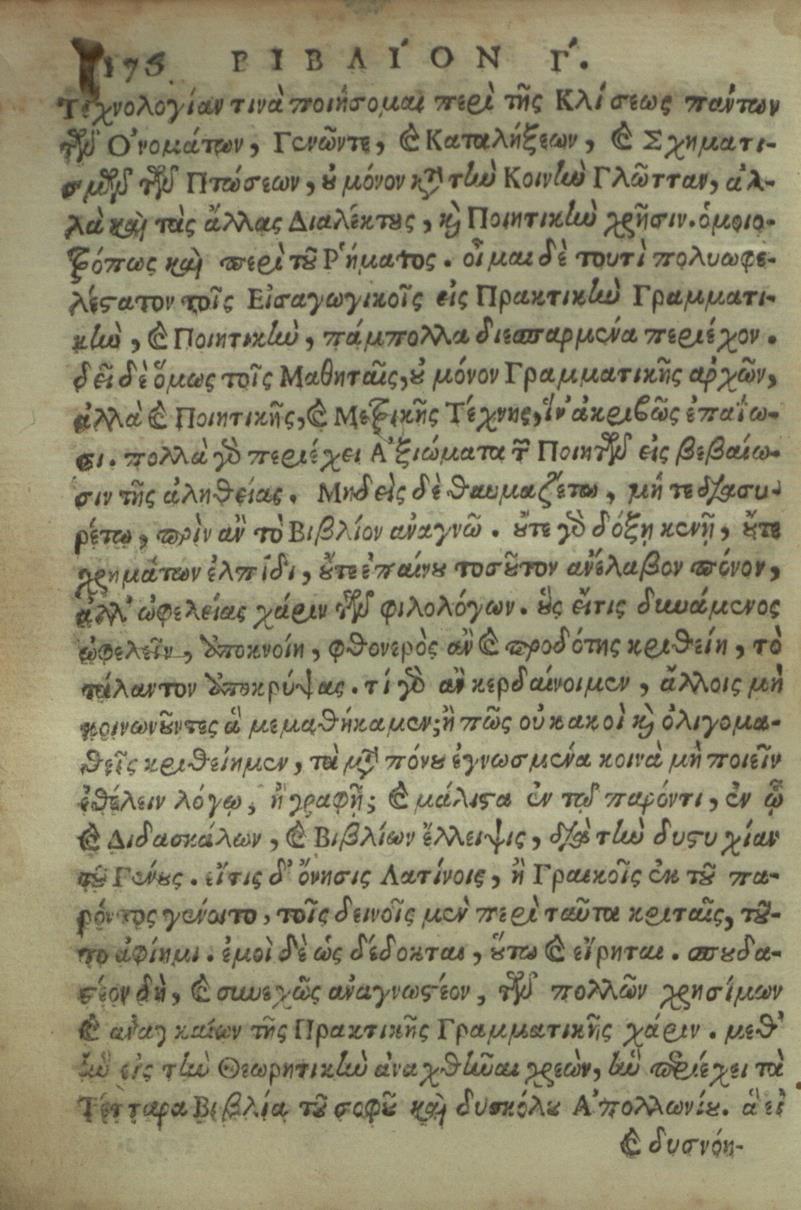 176 ΒΙΒΛΙΌΝ Γ΄.
Τεχνολογίαν τινὰ ποιήσομαι περὶ τῆς Κλίσεως πάντων
τῶν Ὀνομάτων, Γενῶντε, καὶ Καταλήξεων, καὶ Σχηματι-
σμῶν τῶν Πτώσεων, οὐ μόνον κατὰ τὴν Κοινὴν Γλῶτταν, ἀλ-
λὰ καὶ τὰς ἄλλας Διαλέκτους, καὶ Ποιητικὴν χρῆσιν. ὁμοιο-
τρόπως καὶ περὶ τοῦ Ῥήματος. οἶμαι δὲ τουτὶ πολυωφε-
λέστατον τοῖς Εἰσαγωγικοῖς εἰς Πρακτικὴν Γραμματι-
κὴν, καὶ Ποιητικὴν, πάμπολλα διεσπαρμένα περιέχον.
δεῖ δὲ ὅμως τοῖς Μαθηταῖς, οὐ μόνον Γραμματικῆς ἀρχῶν,
ἀλλὰ καὶ Ποιητικῆς, καὶ Μετρικῆς Τέχνης, ἵν' ἀκριβῶς ἐπαΐω-
σι. πολλὰ γὰρ περιέχει Ἀξιώματα τῶν Ποιητῶν εἰς βεβαίω-
σιν τῆς ἀληθείας. Μηδεὶς δὲ θαυμαζέτω, μήτε διασυ-
ρέτω, πρὶν ἂν τὸ Βιβλίον ἀναγνῶ. οὔτε γὰρ δόξῃ κενῇ, οὔτε
χρημάτων ἐλπίδι, οὔτε ἐπαίνου τοσοῦτον ἀνέλαβον πόνον,
ἀλλ' ὠφελείας χάριν τῶν φιλολόγων. οὓς εἴτις δυνάμενος
ὠφελεῖν, ἀποκνοίη, φθονερὸς ἂν καὶ προδότης κριθείη, τὸ
τάλαντον ἀποκρύψας. τί γὰρ ἂν κερδαίνοιμεν, ἄλλοις μὴ
κοινωνοῦντες ἃ μεμαθήκαμεν; ἢ πῶς οὐ κακοὶ καὶ ὀλιγομα-
θεῖς κριθείημεν, τὰ μετὰ πόνου ἐγνωσμένα κοινὰ μὴ ποιεῖν
ἐθέλειν λόγῳ, ἢ γραφῇ; καὶ μάλιστα ἐν τῷ παρόντι, ἐν ᾧ
καὶ Διδασκάλων, καὶ Βιβλίων ἔλλειψις, διὰ τὴν δυστυχίαν
τοῦ Γένους. εἴτις δ' ὄνησις Λατίνοις, ἢ Γραικοῖς ἐκ τοῦ πα-
ρόντος γένοιτο, τοῖς δεινοῖς μὲν περὶ ταῦτα κριταῖς, τοῦ-
το ἀφίημι. ἐμοὶ δὲ ὡς δέδοκται, οὕτω καὶ εἴρηται. σπουδα-
στέον δὴ, καὶ συνεχῶς ἀναγνωστέον, τῶν πολλῶν χρησίμων
καὶ ἀναγκαίων τῆς Πρακτικῆς Γραμματικῆς χάριν. μεθ'
ἣν εἰς τὴν Θεωρητικὴν ἀναχθῆναι χρεὼν, ἣν περιέχει τὰ
Τέτταρα Βιβλία τοῦ σοφοῦ καὶ δυσκόλου Ἀπολλωνίου. ἃ εἰ
καὶ δυσνόη-